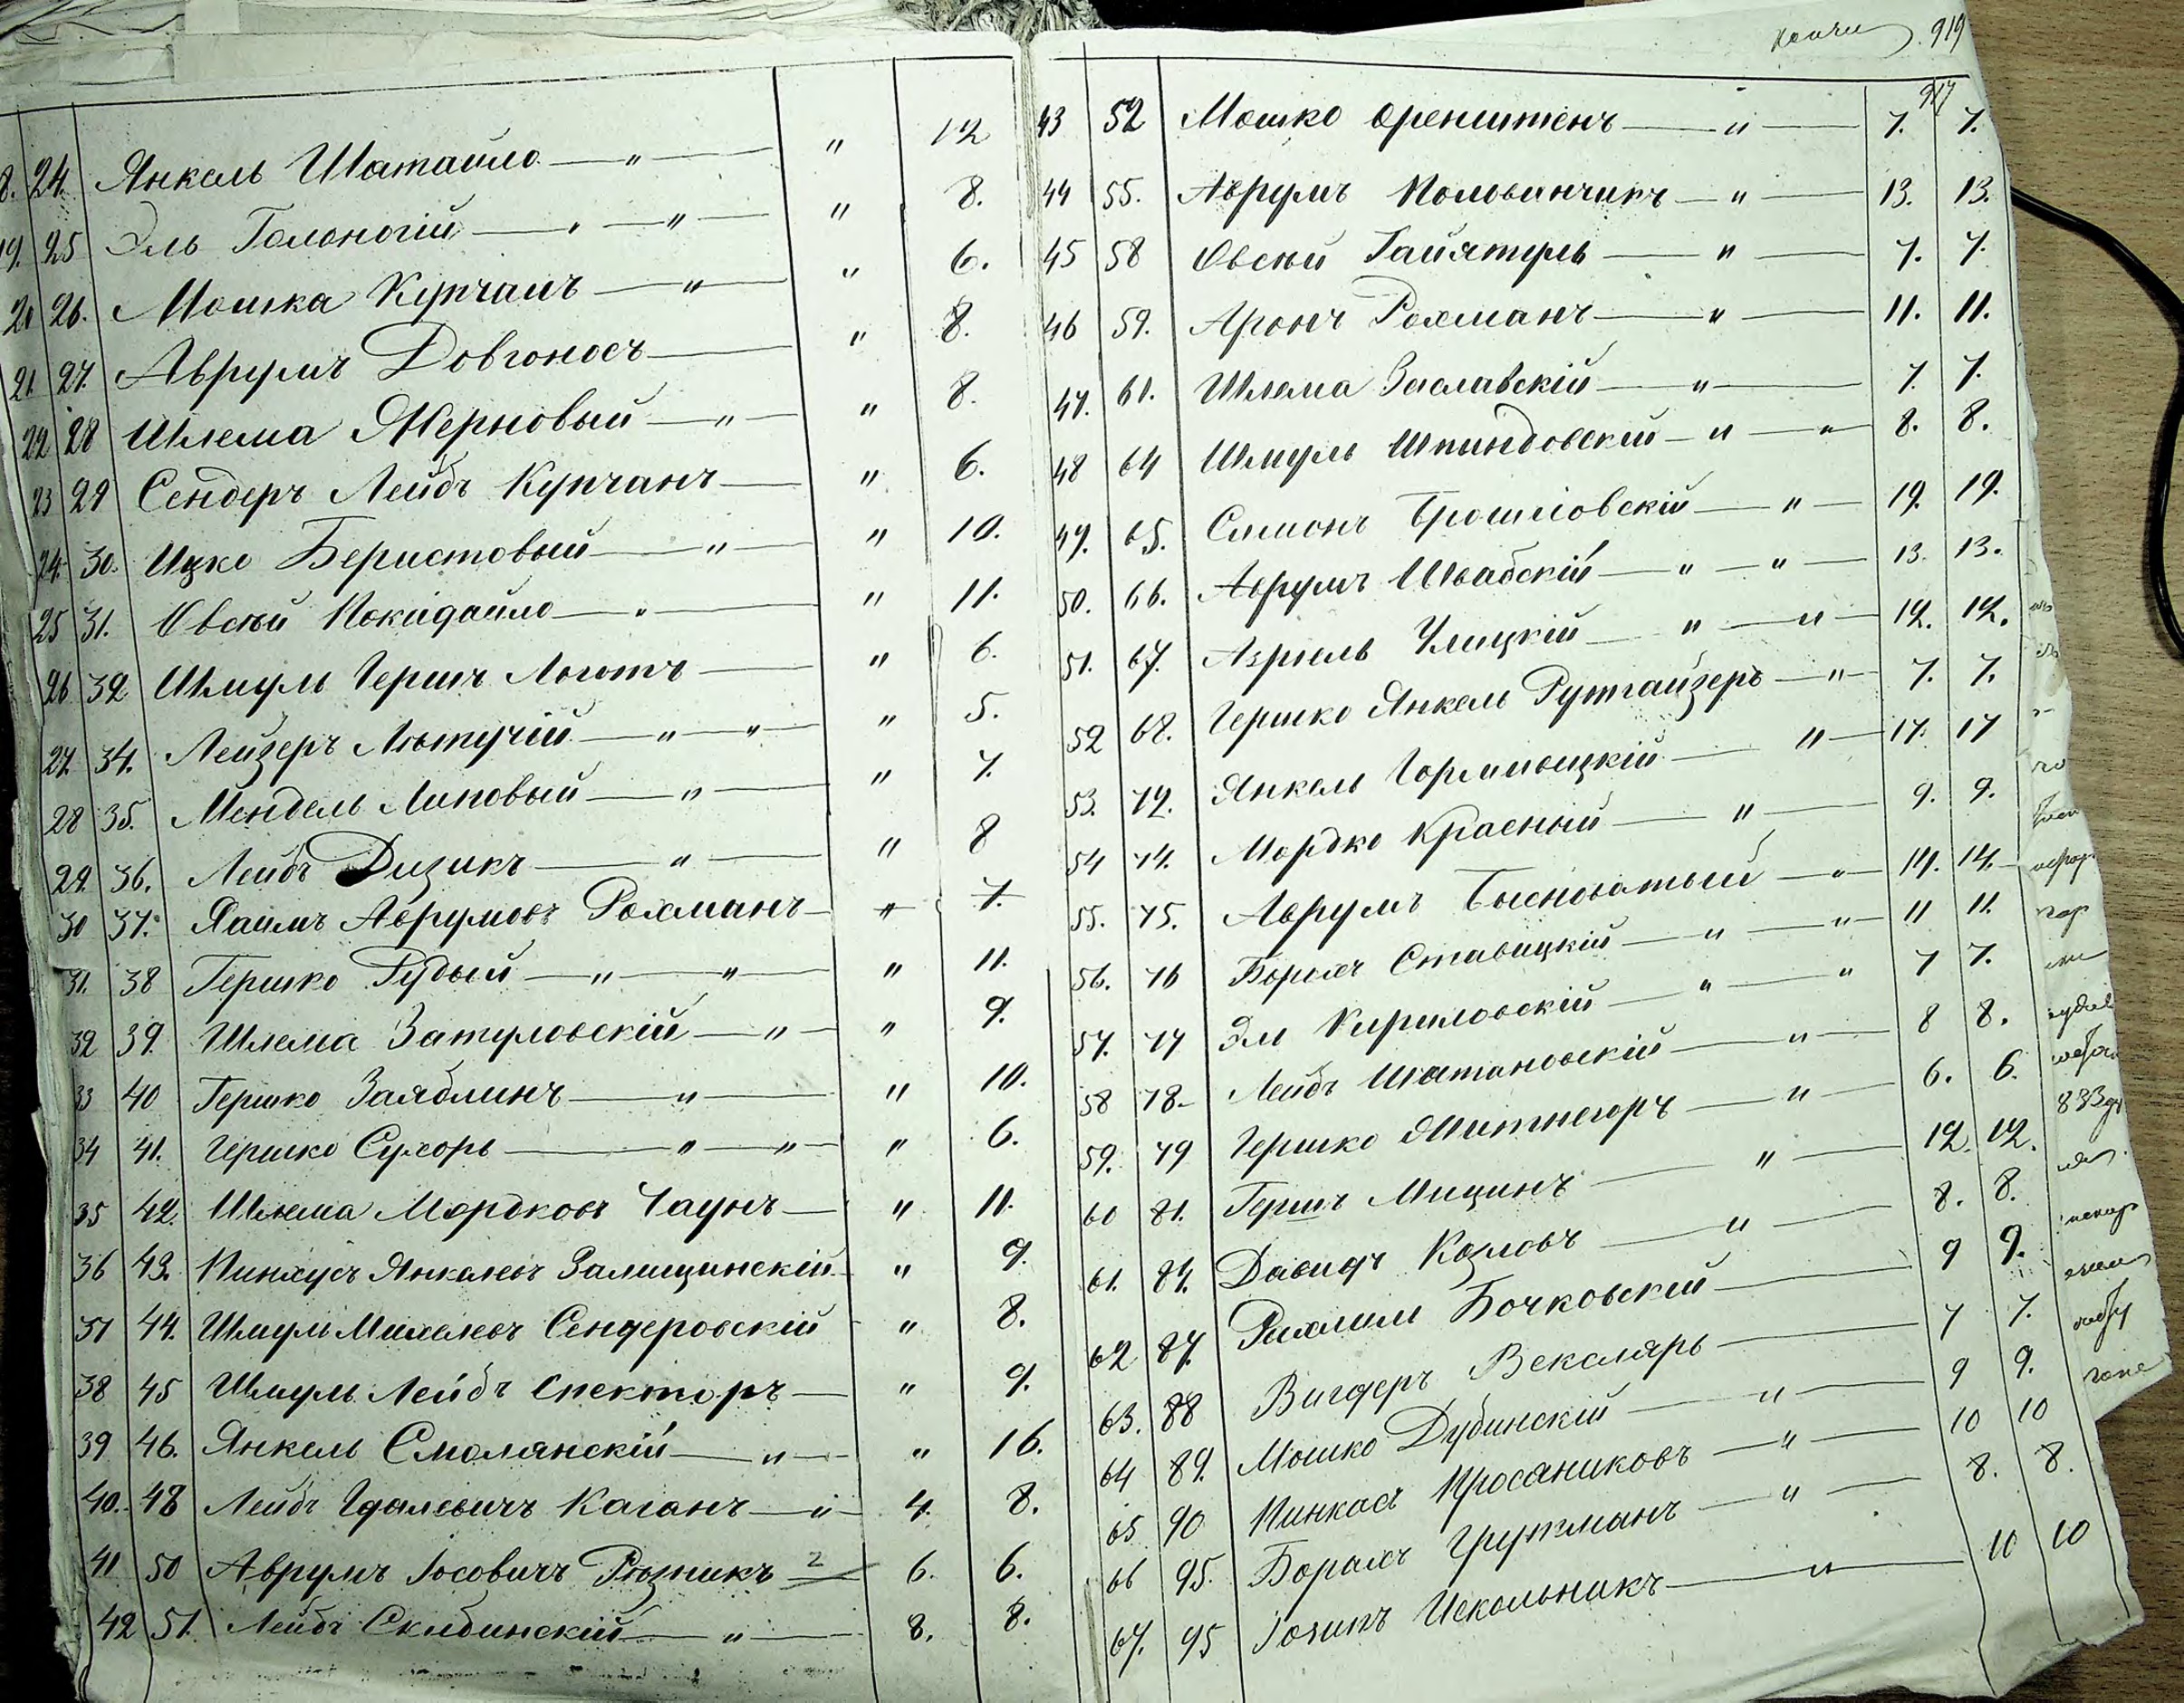 8. 24. Янкель Шатайло — " — " 12
19. 25 Эль Голоногій — " — " — " 8.
20 26. Мошка Купчанъ — " — " 6.
21. 27. Аврумъ Довгоносъ — " 8.
22 28 Шлема Жерновый — " — " 8.
23 29 Сендеръ Лейбъ Купчанъ — " 6.
24. 30. Ицко Беристовый — " — " 10.
25 31. Овсѣй Покидайло — " — " 11.
26 32 Шмуль Гершъ Логотъ — " 6.
27. 34. Лейзеръ Лютучій — " — " — " 5.
28 35. Мендель Липовый — " — " 7.
29. 36. Лейбъ Дизикъ — " — " 8
30 37. Хаимъ Аврумовъ Рохманъ — " 7.
31. 38 Гершко Рудый — " — " — " 11.
32 39. Шлема Затуловскій — " — " 9.
33 40 Гершко Заяблинъ — " — " 10.
34 41. Гершко Сухоръ — " — " — " 6.
35 42. Шлема Мордковъ Чаунъ — " 11.
36 43. Пинхусъ Янкелевъ Залищинскій " 9.
37 44. Шмуль Михелевъ Сендеровскій " 8.
38 45 Шмуль Лейбъ Спекторъ — " 9.
39 46. Янкель Смолянскій — " — " 16.
40. 48 Лейбъ Гдалевичъ Каганъ — " — 4. 8.
41 50 Аврумъ Іосовичъ Рѣзникъ 2 6. 6.
42 51. Лейбъ Склбинскій — " — 8. 8.
919
917
43 52 Мошко Оренштенъ — " — 7. 7.
44 55. Аврумъ Половинчикъ — " — 13. 13.
45 58 Овсѣй Гайятуль — " — 7. 7.
46 59. Аронъ Рохманъ — " — 11. 11.
47. 61. Шлема Заславскій — " — 7. 7.
48 64 Шмуль Шпиндовскій — " — " 8. 8.
49. 65. Симонъ Брошковскій — " — 19. 19.
50. 66. Аврумъ Швабскій — " — " — 13. 13.
51. 67. Азріель Улицкій — " — " — 12. 12.
52 68. Гершко Янкель Рутгайзеръ — " — 7. 7.
53. 72. Янкель — " — 17. 17
54 74. Мордко Красный — " — 9. 9.
55. 75. Аврумъ Бысноватый — " — 14. 14.
56. 76 Борохъ Ставицкій — " — " — 11 11.
57. 77 Эли Кириловскій — " — " 7 7.
58 78. Лейбъ Шатановскій — " — 8 8.
59. 79 Гершко — " — 6. 6.
60 81. Гершъ Мицинъ — " — 12. 12.
61. 84. Давидъ Козловъ — " — 8. 8.
62 87. Рахмиль Бочковскій — 9 9.
63. 88 Вигдеръ Векслярь — 7 7.
64 89. Мошко Дубинскій — " — 9 9.
65 90 Пинкасъ Просяниковъ — " — 10 10
66 95. Борахъ Грутманъ — " — 8. 8.
67. 95 Іосипъ Искольникъ — " — 10 10
833